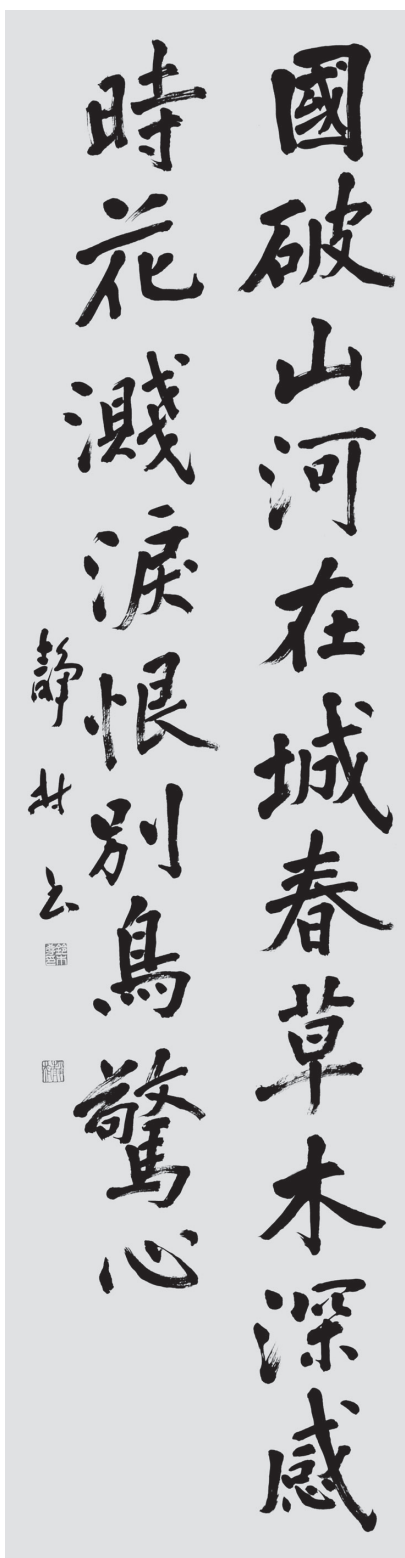 國破山河在城春草木深感
時花濺淚恨別鳥驚心
靜林書